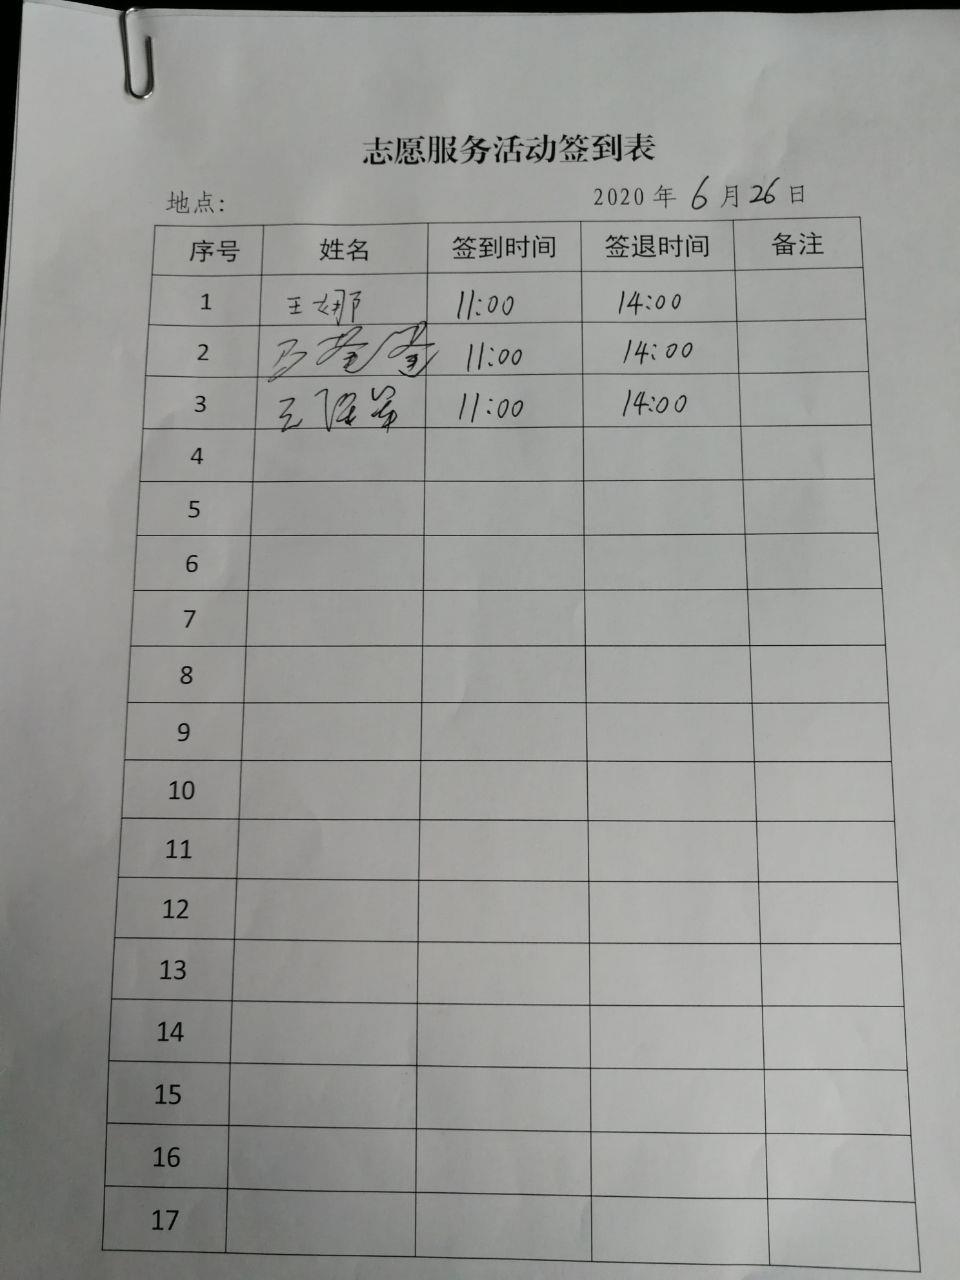 志愿服务活动签到表
地点: 2020 年 6 月 26 日
序号 姓名 签到时间 签退时间 备注
1 王娜 11:00 14:00
2 11:00 14:00
3 王 11:00 14:00
4
5
6
7
8
9
10
11
12
13
14
15
16
17